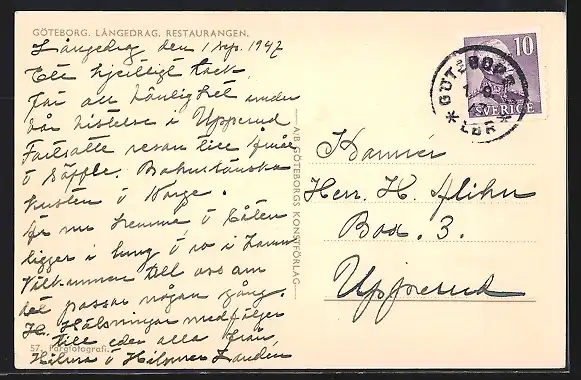 GÖTEBORG. LÅNGEDRAG. RESTAURANGEN.
Långedrag den 1 sep. 1947
Ett hjertligt tack
för all vänlighet under
vår vistelse i Upperud
Fortsatte resan till Åmål
o Säffle. Bohuslänska
kusten o Norge.
är nu hemma, o båten
ligger i lugn o ro i hamn
Välkommen till oss om
det passar någon gång.
H. Hälsningar medföljer
till eder alla från,
Hilma o Hilmer Landén
57. Färgfotografi.
A/B GÖTEBORGS KONSTFÖRLAG
10
SVERIGE
GÖTEBORG
LBR
Herr. H.
Box. 3.
Upperud